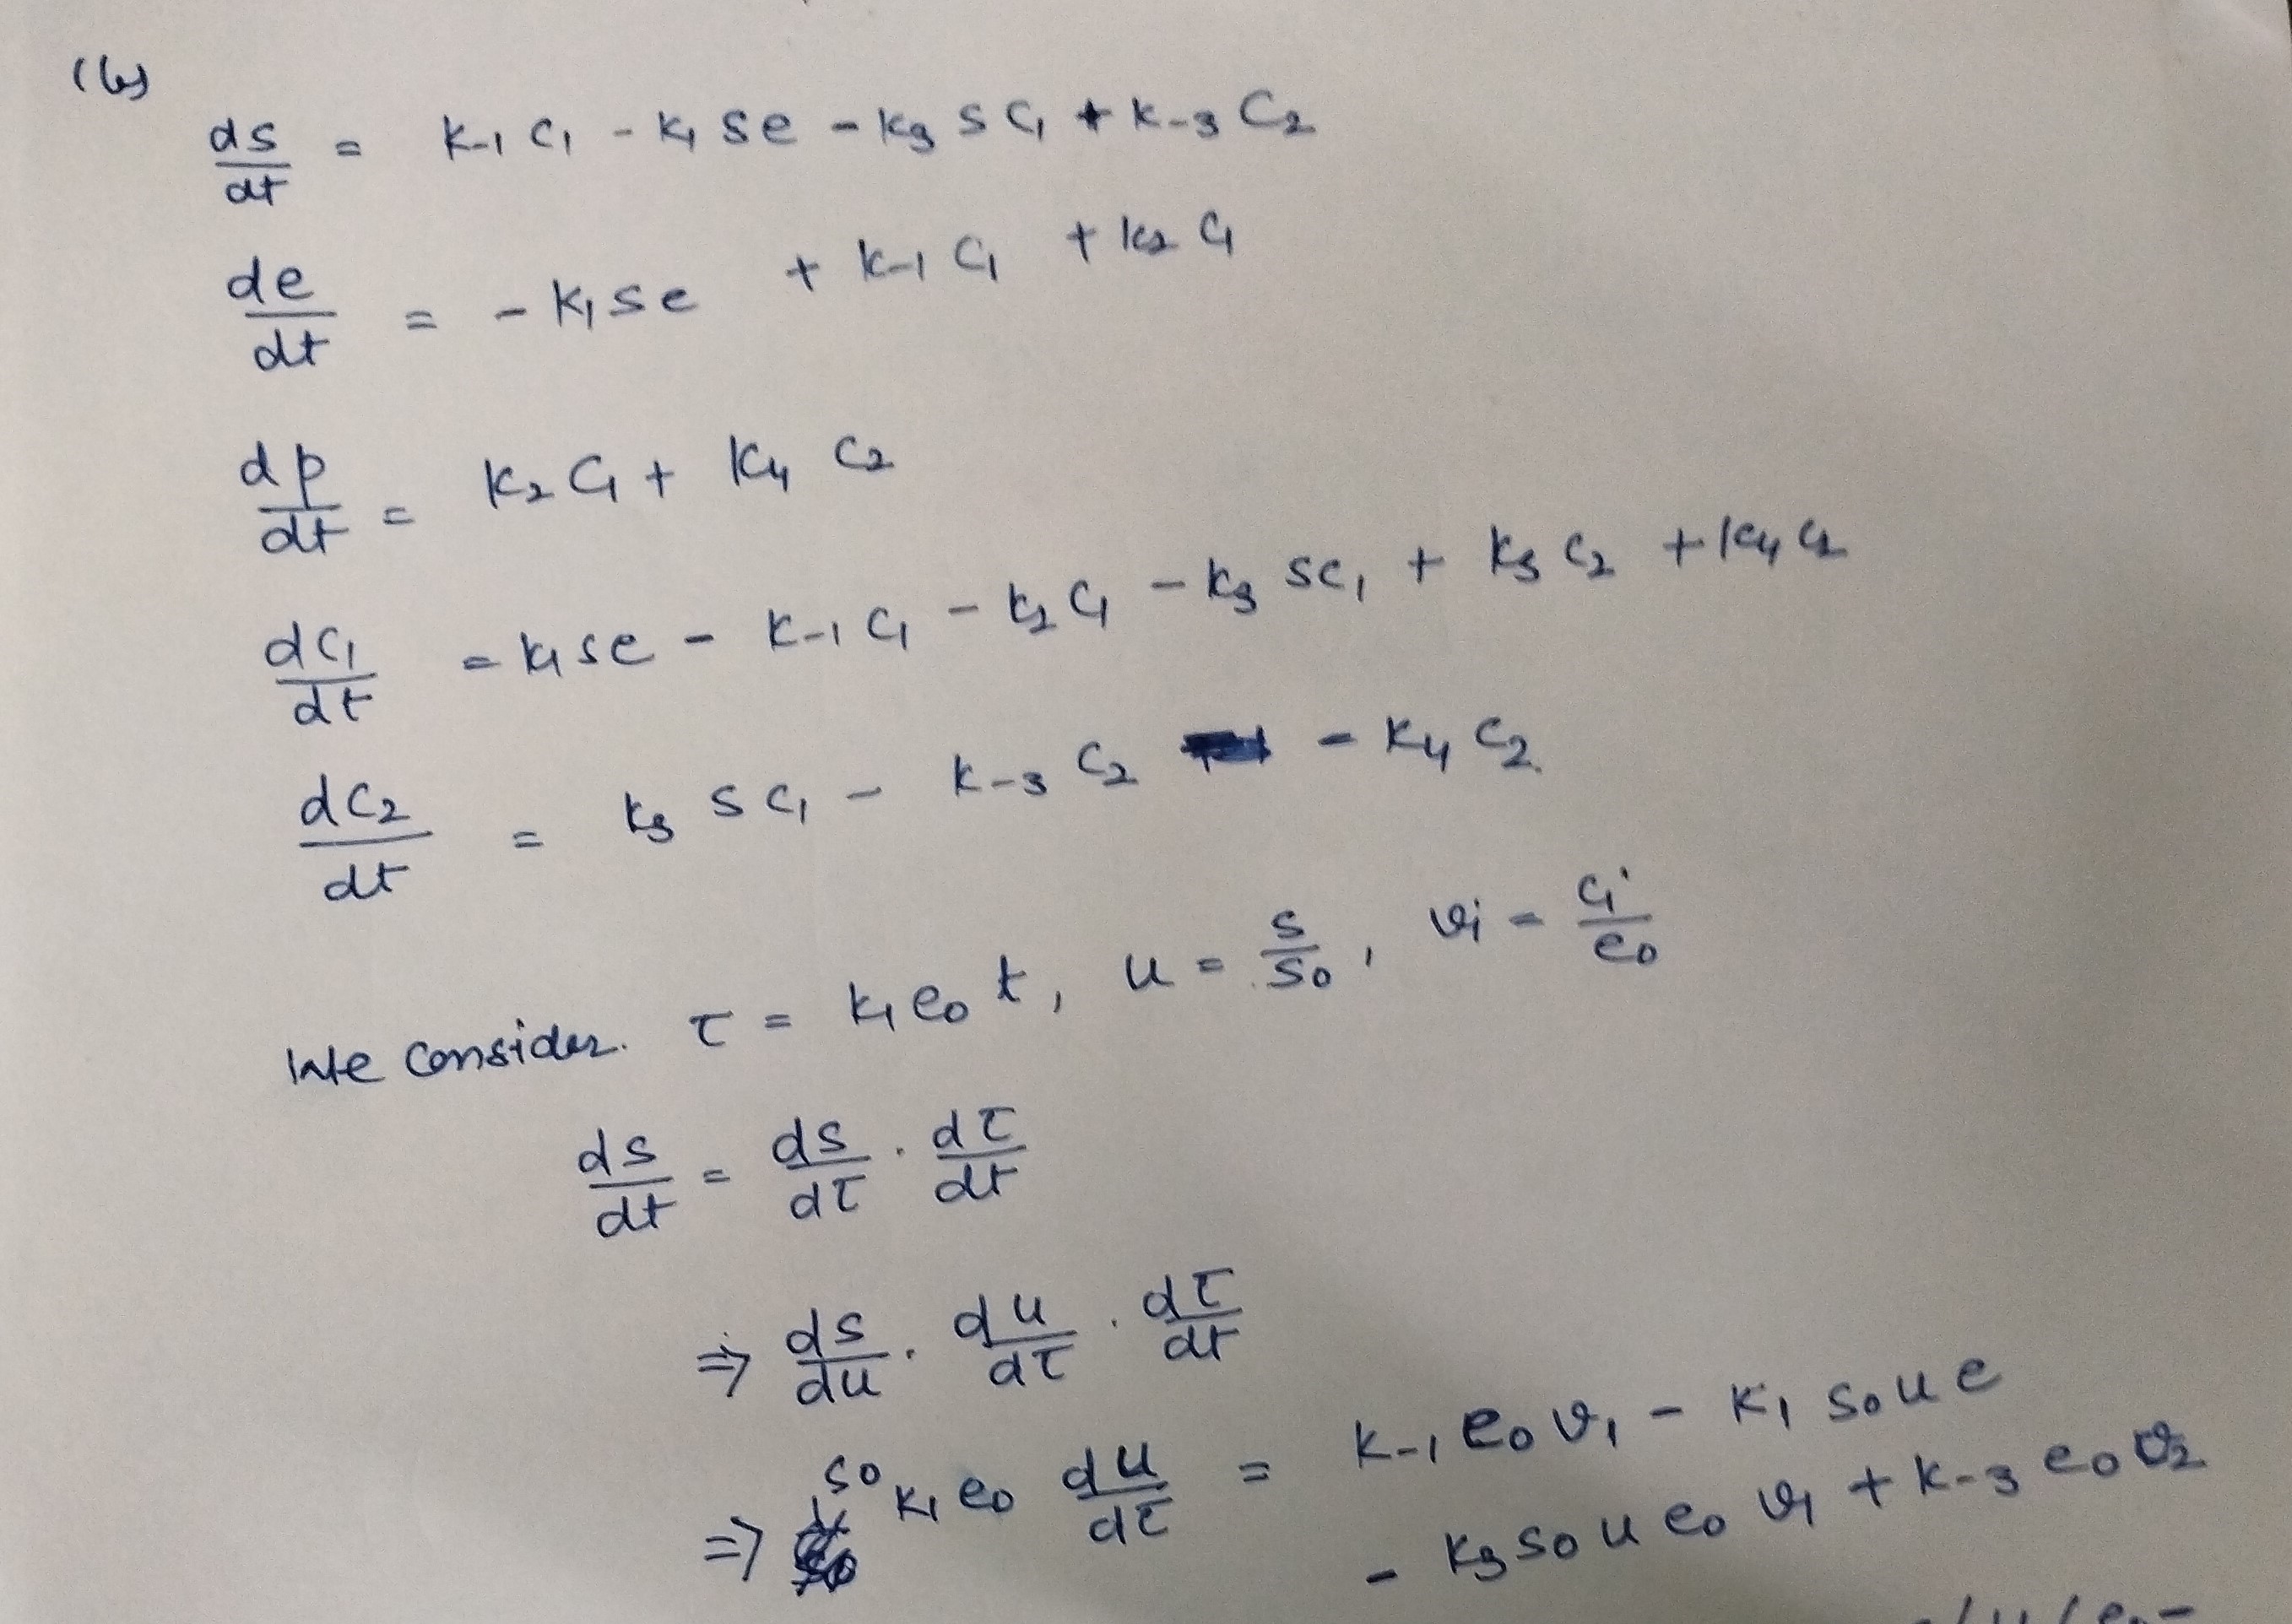 (b)
ds/dt = k-1 c1 - k1 se - k3 s c1 + k-3 c2
de/dt = - k1 se + k-1 c1 + k2 c1
dp/dt = k2 c1 + k4 c2
dc1/dt = k1 se - k-1 c1 - k2 c1 - k3 sc1 + k3 c2 + k4 c2
dc2/dt = k3 s c1 - k-3 c2 - k4 c2.
We consider. τ = k1 e0 t, u = s/s0, vi = ci/e0
ds/dt = ds/dτ . dτ/dt
⇒ ds/du . du/dτ . dτ/dt
⇒ s0 k1 e0 du/dτ = k-1 e0 v1 - k1 s0 u e
- k3 s0 u e0 v1 + k-3 e0 v2